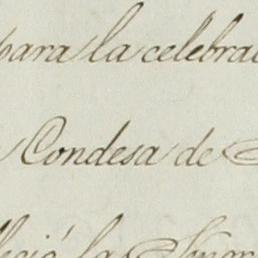 para la celebra
Condesa de
leció la Señor